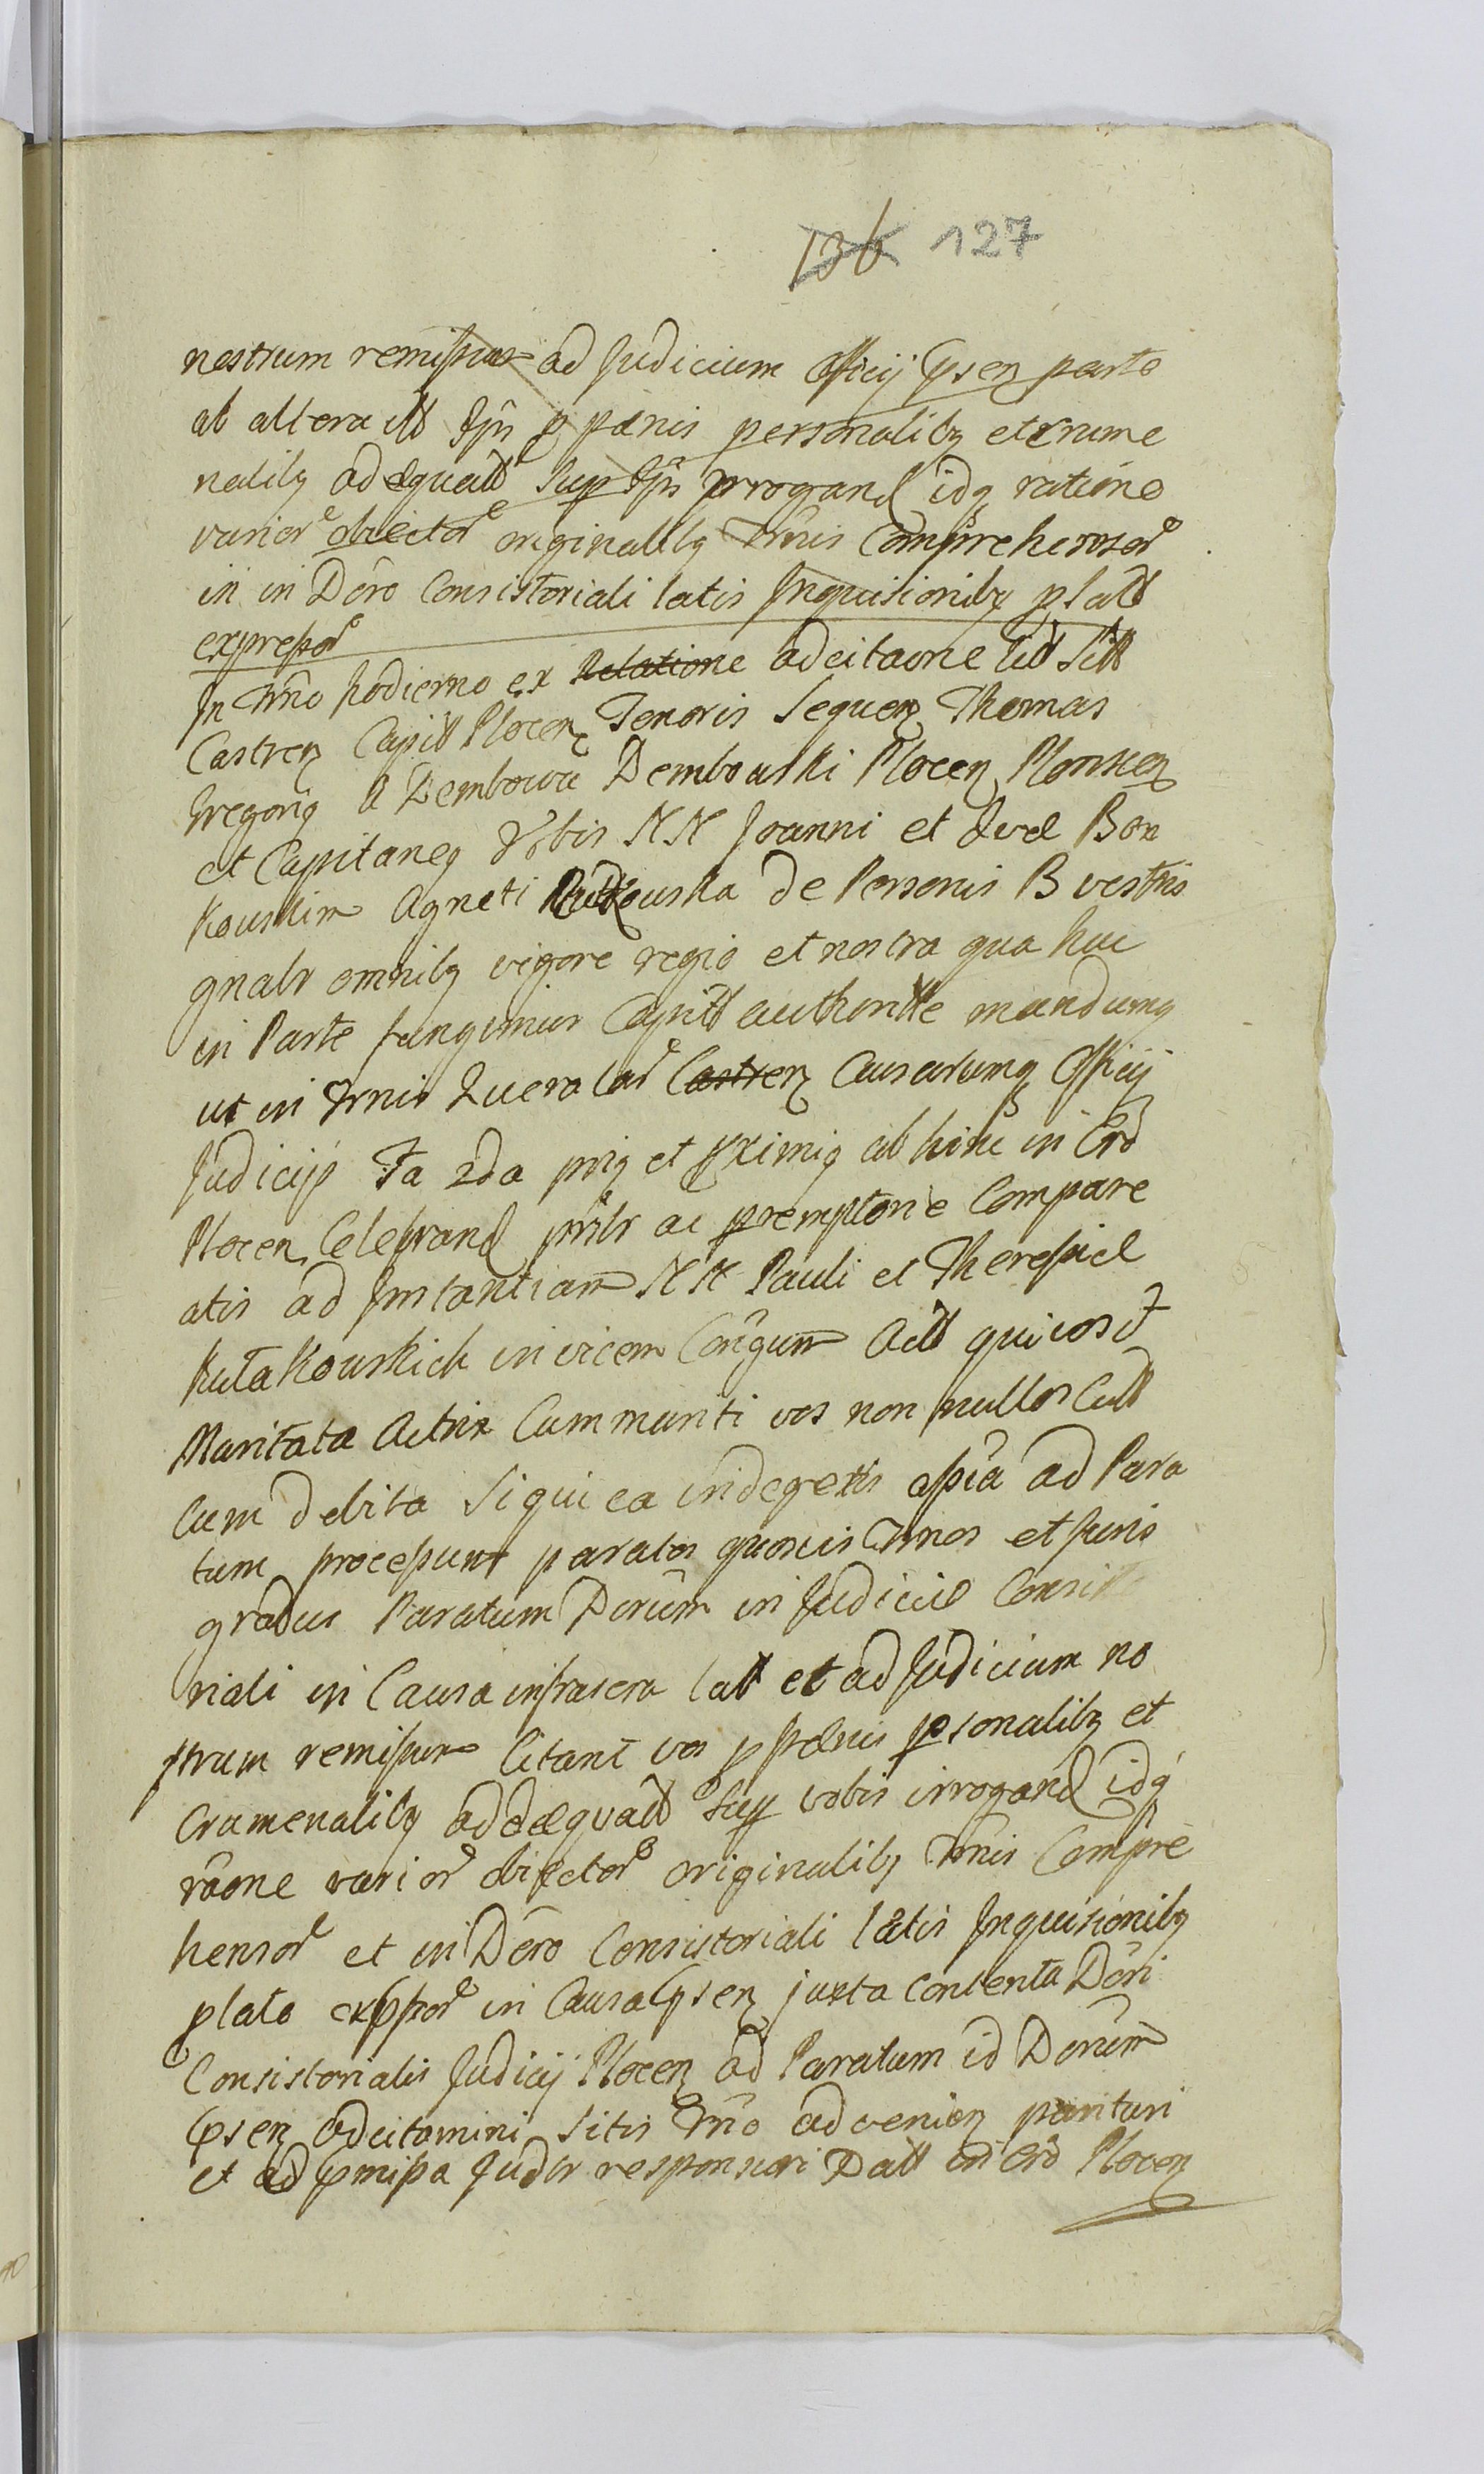 136 127
nostrum remissum ad Judicium Officij Psen parte
ab altera citt Ipis p pænis personalibq et crume
nalibq adæquatt sup Ipis irrogand idq ratione
varior obiector originalibq Tmis Comprehensor
in in Dcro Consistoriali latis Inquisitionibq plat
expressor
In Tmo hodierno ex Relatione adcitaone lid Litt
Castren Capitt Plocen Tenoris Sequen Thomas
Gregoriq a Dembowa Dembouski Plocen Plonscen
et Capitaneq Vobis NN Joanni et Evæ Bon
kouskim Agneti Rutkouska de Personis B vestris
gnalr omnibq vigore regio et nostra qua hac
in Parte fungimur Capitt authoritte mandamq
ut in Tmis Querelar Castren Causarumq Officij
Judicijs Fa 2da priq et pximiq ab hinc in Crd
Plocen Celebrand prnlr ac premptorie Compare
atis ad Instantiam NN Pauli et Theressiæ
Rutakouskich invicem Congum Act qui vos et
Maritata Actrix Cum mariti vos non nullos Citt
cum debita siqui ea indegetis assia ad Para
tum processum paratos quosvis Tmos et Juris
gradus Paratum Dcrum in Judicio Consisto
riali in Causa infrascra latt et ad Judicium no
strum remissum Citant vos p pænis psonalibq et
crumenalibq addæquatt sup vobis irrogand idq
raone varior obiector originalibq Tmis Compre
hensor et in Dcro Consistoriali latis Inquisitionibq
plato exppor in Causa Psen juxta contenta Dcri
Consistorialis Judicij Plocen ad Paratum id Dcrum
Psen adcitamini sitis Tmo advenien parituri
et ad pmissa Judlr responsuri Datt in Crd Plocen